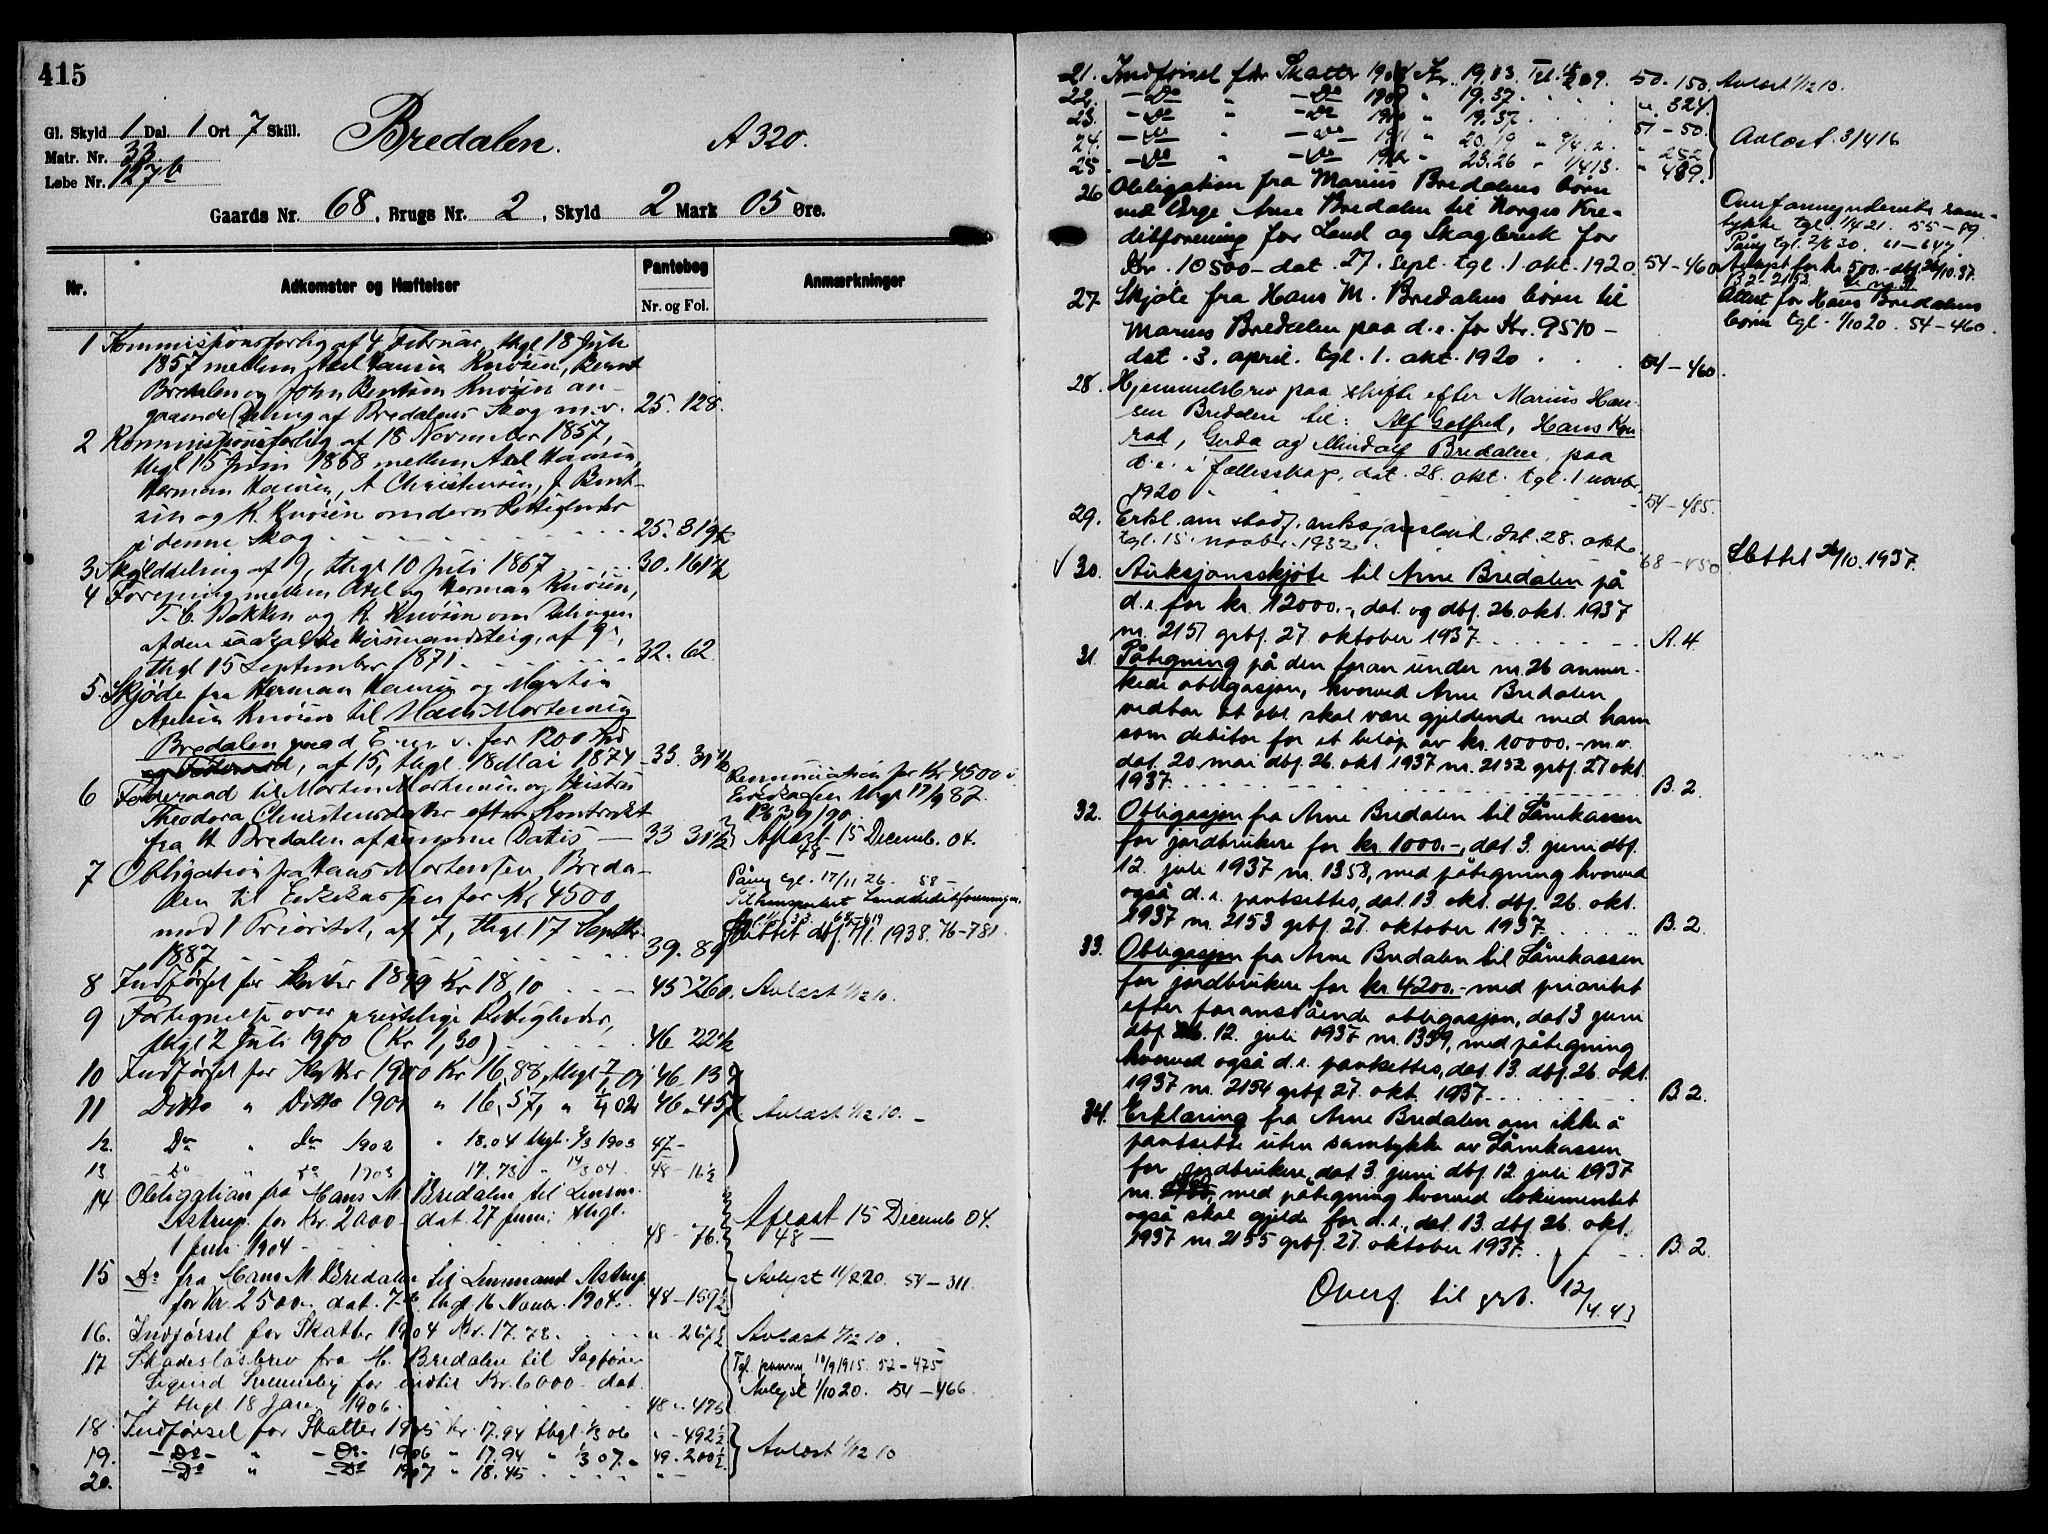 415
Gl. Skyld 1 Dal. 1 Ort 7 Skill.
Matr. Nr. 33
Løbe Nr. 127b
Bredalen. A 320.
Gaards Nr. 68, Brugs Nr. 2, Skyld 2 Mark 05 Øre.
Nr. Adkomster og Hæftelser Pantebog Anmærkninger
Nr. og Fol.
1 Kommissionsforlig af 4 Februar, thgl 18 Juli
1857 mellem Axel Hansen Knösen, Bernt
Bredalen og John Berntsen Knösen an-
gaaende Deling af Bredalens Skog m.v. 25. 128.
2 Kommissionsforlig af 18 November 1857,
thgl 15 Juni 1858 mellem Axel Hansen,
Herman Hansen, A Christensen, J. Bent-
sen og K. Knösen om deres Rettigheder
i denne Skog 25. 319b
3. Skylddeling af 9, thgl 10 Juli 1867 30. 161b
4 Forening mellem Axel og Herman Knösen,
T. C. Bakken og K. Knösen om Delingen
af den saakaldte Husmandsteig, af 9,
thgl 15 September 1871. 32. 62
5. Skjöde fra Herman Hansen og Martin
Axelsen Knösen til Hans Mortensen
Bredalen paa d E. m. v. for 1200 Spd
og Föderaad, af 15, thgl. 18 Mai 1874 33. 31b
6 Föderaad til Morten Mortensen og Hustru
Theodora Christensdatter efter Kontrakt
fra H Bredalen af samme Datis 33 31b Aflæst 15 Decemb. 04.
48 —
Renunciation for Kr 4500 i
Enkekassen thgl 17/9 87.
7 Obligation fra Hans Mortensen Breda-
len til Enkekassen for Kr 4500
med 1 Prioritet, af 7, thgl. 17 Septbr.
1887 39. 89
Påny tgl. 17/11 26. 58 —
Slettet dbf. 7/1. 1938. 76-781.
8 Indförsel for Skatter 1899 Kr 18,10 45 260. Avlæst 1/12 10.
9 Fortegnelse over private Rettigheder,
thgl 2 Juli 1900 (Kr 1,30) 46 22b
10 Indförsel for Skatter 1900 Kr 16,88, thgl 46 13
11 Ditto " Ditto 1901 " 16,57, " 02 46 457 Avlæst 1/12 10. —
12. Do " do 1902 " 18.04 thgl. 2/3 1903 47 —
13 Do " do 1903 " 17.73 " 14/3 04. 48 — 16½
14 Obligation fra Hans M Bredalen til Lensm.
Astrup for Kr. 2000 — dat 27 Juni thgl.
1 Juli 1904 48 — 76. Aflæst 15 Decemb 04.
48 —
15 Do fra Hans M. Bredalen til Lensmand Astrup
for Kr. 2500. dat. 7de thgl 16 Novbr. 1904. 48 — 189½ Avlyst 11/2 20. 54 — 311.
16. Indförsel for Skatter 1904 Kr. 17.73. " 267½ Avlæst 1/12 10.
17 Skadeslösbrev fra H. Bredalen til Sagförer
for indtil Kr. 6000 — dat
thgl 18 Jan. 1906. 48 — 475
Tgl. paany 10/9 1915. 52 — 475
Avlyst 1/10 20. 54 — 466.
18. Indförsel for Skatter 1905 Kr. 17.94 thgl. 1/3 06 " — 492½
19. — Do — " — Do — 1906 " 17.94 " 1/3 07. " 49. 200½ Avlæst 1/12 10
20. — Do " — Do 1907 " 18.45 " —
21. Indförsel for Skatter 1908 Kr. 19.83. Tgl. 209. 50. 150. Avlæst 1/12 10.
22. — Do " — Do 1909 " 19.37. " 324.
23. — Do " — Do 1910 " 19.37. 51 — 50. Avlæst. 3/4 16
24. — Do — Do 1911 " 20.19 " 9/4 12. " 252
25. — Do " — Do 1912 " 23.26 " 1/4 13. " 489.
26 Obligation fra Marius Bredalens börn
ved Verge Arne Bredalen til Norges Kre-
ditforening for Land og Skogbruk for
Kr. 10500 — dat. 27. sept. tgl. 1 okt. 1920. 54 — 460
Overformynderiets sam-
tykke tgl. 1/4 21. 55 — 89.
Påny tgl. 2/6 30. 61 — 647
Avlyst for kr. 500. — dbf. 26/10.37.
B 2 - 2152
27. Skjöte fra Hans M. Bredalens börn til
Marius Bredalen paa d. e. for Kr. 9510 —
dat. 3. april. tgl. 1. okt. 1920 54 — 460.
Attest for Hans Bredalens
börn tgl. 1/10 20. 54 — 460.
28. Hjemmelsbrev paa skifte efter Marius Han-
sen Bredalen til: Alf Gotfred, Hans Kon-
rad, Gerda og Mindolf Bredalen. paa
d. e. i fællesskap. dat. 28. okt. tgl. 1 novbr.
1920 54 — 485.
29. Erkl. om stadf. auksjonsbud. dat. 28. okt.
tgl. 15. novbr. 1932. 68 — 450 Slettet 26/10. 1937.
√ 30. Auksjonsskjöte til Arne Bredalen på
d. e. for kr. 12000. -, dat. og dbf. 26. okt. 1937
nr. 2151 grbf. 27 oktober 1937. A. 4.
31. Påtegning på den foran under nr. 26 anmer-
kede obligasjon, hvorved Arne Bredalen
vedtar at obl. skal være gjeldende med ham
som debitor for et beløp av kr. 10000. - m.v.
dat. 20. mai dbf. 26. okt 1937 nr. 2152 grbf. 27 okt.
1937. B. 2.
32. Obligasjon fra Arne Bredalen til Lånekassen
for jordbrukere for kr. 1000. -, dat 3. juni dbf.
12. juli 1937 nr. 1358, med påtegning hvorved
også d. e. pantsettes, dat. 13. okt. dbf. 26. okt.
1937 nr. 2153 grbf. 27. oktober 1937. B. 2.
33. Obligasjon fra Arne Bredalen til Lånekassen
for jordbrukere for kr. 4200. - med prioritet
efter foranstående obligasjon, dat 3 juni
dbf. 12. juli 1937 nr. 1359, med påtegning
hvorved også d. e. pantsettes, dat. 13. dbf. 26. okt.
1937 nr. 2154 grbf. 27. okt. 1937. B. 2.
34. Erklæring fra Arne Bredalen om ikke å
pantsette uten samtykke av Lånekassen
for jordbrukere, dat 3. juni dbf. 12. juli 1937
nr. 1360, med påtegning hvorved dokumentet
også skal gjelde for d. e., dat. 13. dbf. 26. okt.
1937 nr. 2155 grbf. 27. oktober 1937. B. 2.
Overf. til grb. 12/4. 43